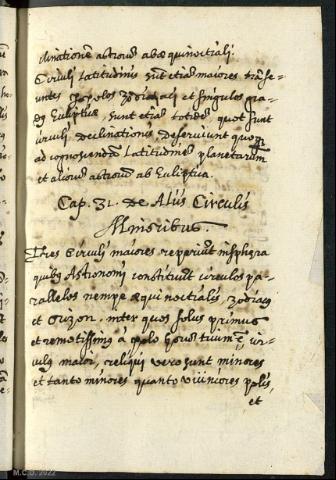 clinatione astrorũ ab æquinoctiali.
Circuli Latitudinis sunt etiã maiores transe-
untes p polos Zodiaci et singulos gra-
dus Eclipticæ, sunt etiã totidẽ quot sunt
circuli declinationis deserviunt
ad cognoscendã Latitudinẽ planetarum
et aliorũ astrorũ ab Ecliptica.
Cap. 31. de Aliis Circulis
Minoribus.
Tres Circuli maiores reperiũt in sphera
quibus Astronomi constituũt circulos pa-
rallelos nempe æquinoctialis, zodiacus
et Orizon, inter quos solus primus
et remotissimus à polo est cir-
culus maior, reliqui vero sunt minores
et tanto minores quanto viciniores polis,
et
M.C.D. 2022